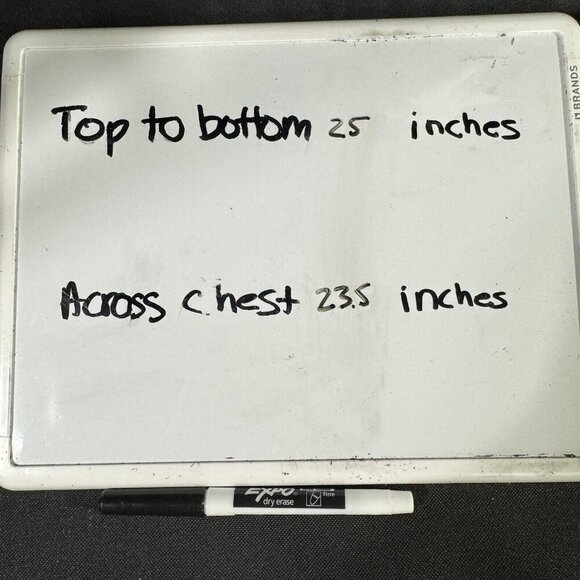 Top to bottom 25 inches
Across chest 23.5 inches
BRANDS
EXPO
dry erase
fine